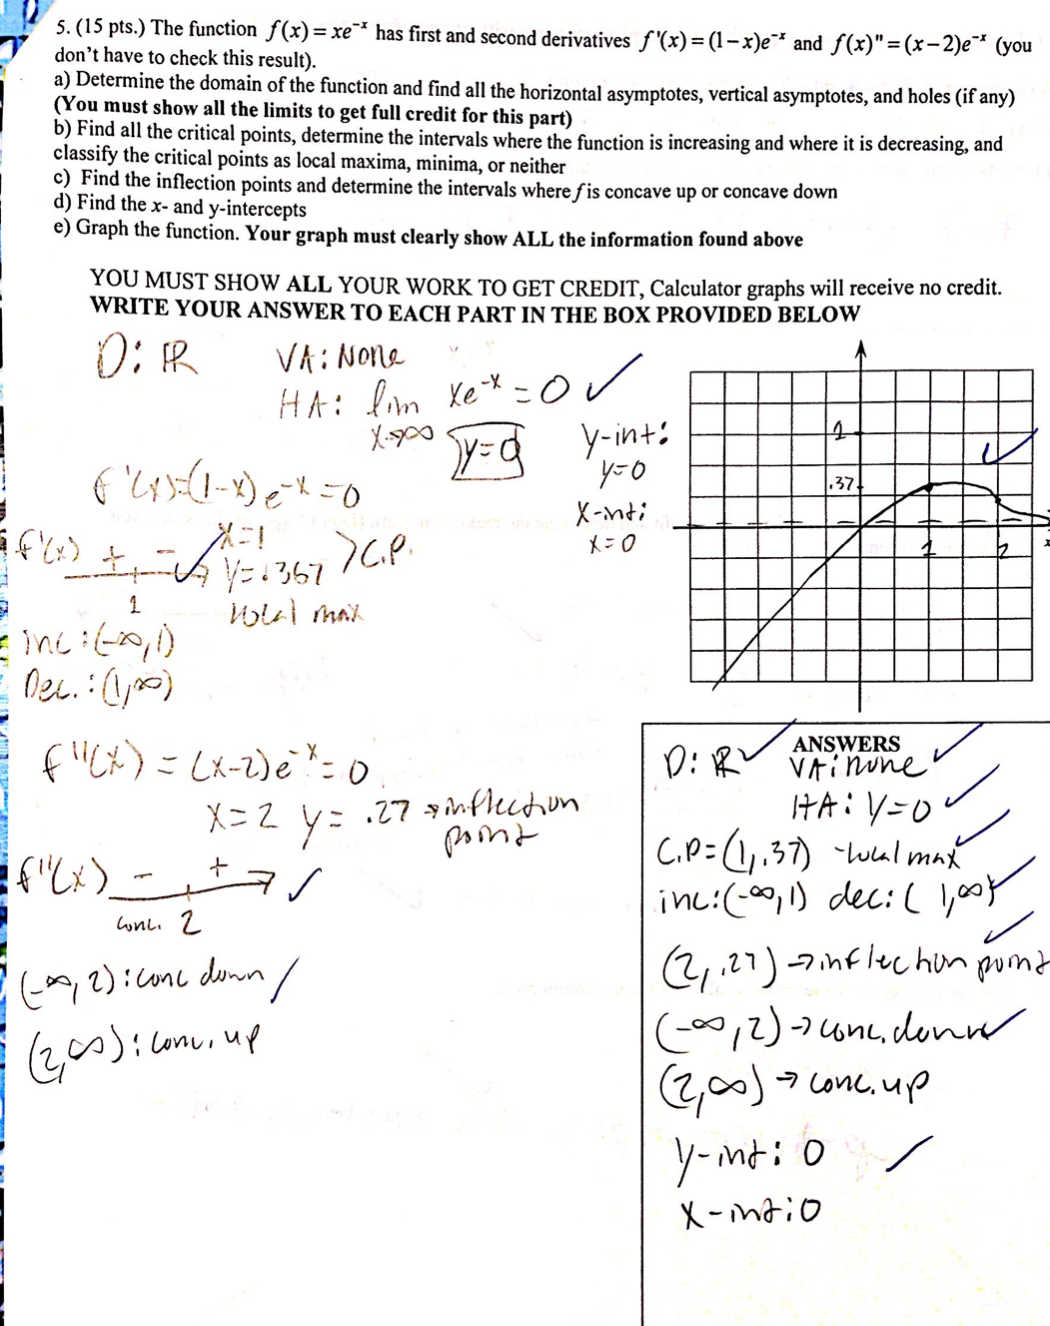 5. (15 pts.) The function f(x) = xe⁻ˣ has first and second derivatives f'(x) = (1−x)e⁻ˣ and f(x)" = (x−2)e⁻ˣ (you
don't have to check this result).
a) Determine the domain of the function and find all the horizontal asymptotes, vertical asymptotes, and holes (if any)
(You must show all the limits to get full credit for this part)
b) Find all the critical points, determine the intervals where the function is increasing and where it is decreasing, and
classify the critical points as local maxima, minima, or neither
c) Find the inflection points and determine the intervals where f is concave up or concave down
d) Find the x- and y-intercepts
e) Graph the function. Your graph must clearly show ALL the information found above
YOU MUST SHOW ALL YOUR WORK TO GET CREDIT, Calculator graphs will receive no credit.
WRITE YOUR ANSWER TO EACH PART IN THE BOX PROVIDED BELOW
D: ℝ
VA: None
HA: lim xe⁻ˣ = 0 ✓
x→∞
y=0
y-int:
y=0
x-int:
x=0
f'(x)=(1-x)e⁻ˣ=0
x=1
y=.367 > C.P.
local max
f'(x) + -
1
inc: (-∞,1)
Dec.: (1,∞)
f"(x) = (x-2)e⁻ˣ = 0
x=2 y= .27 → inflection
point
f"(x) - +
conc. 2
(-∞, 2): conc down
(2,∞): conc. up
1
.37
1
2
x
ANSWERS
D: ℝ ✓
VA: none ✓
HA: y=0 ✓
C.P= (1,.37) -local max ✓
inc: (-∞,1) dec: (1,∞) ✓
(2,.27) → inflection point ✓
(-∞,2) → conc. down ✓
(2,∞) → conc. up
y-int: 0 ✓
x-int: 0